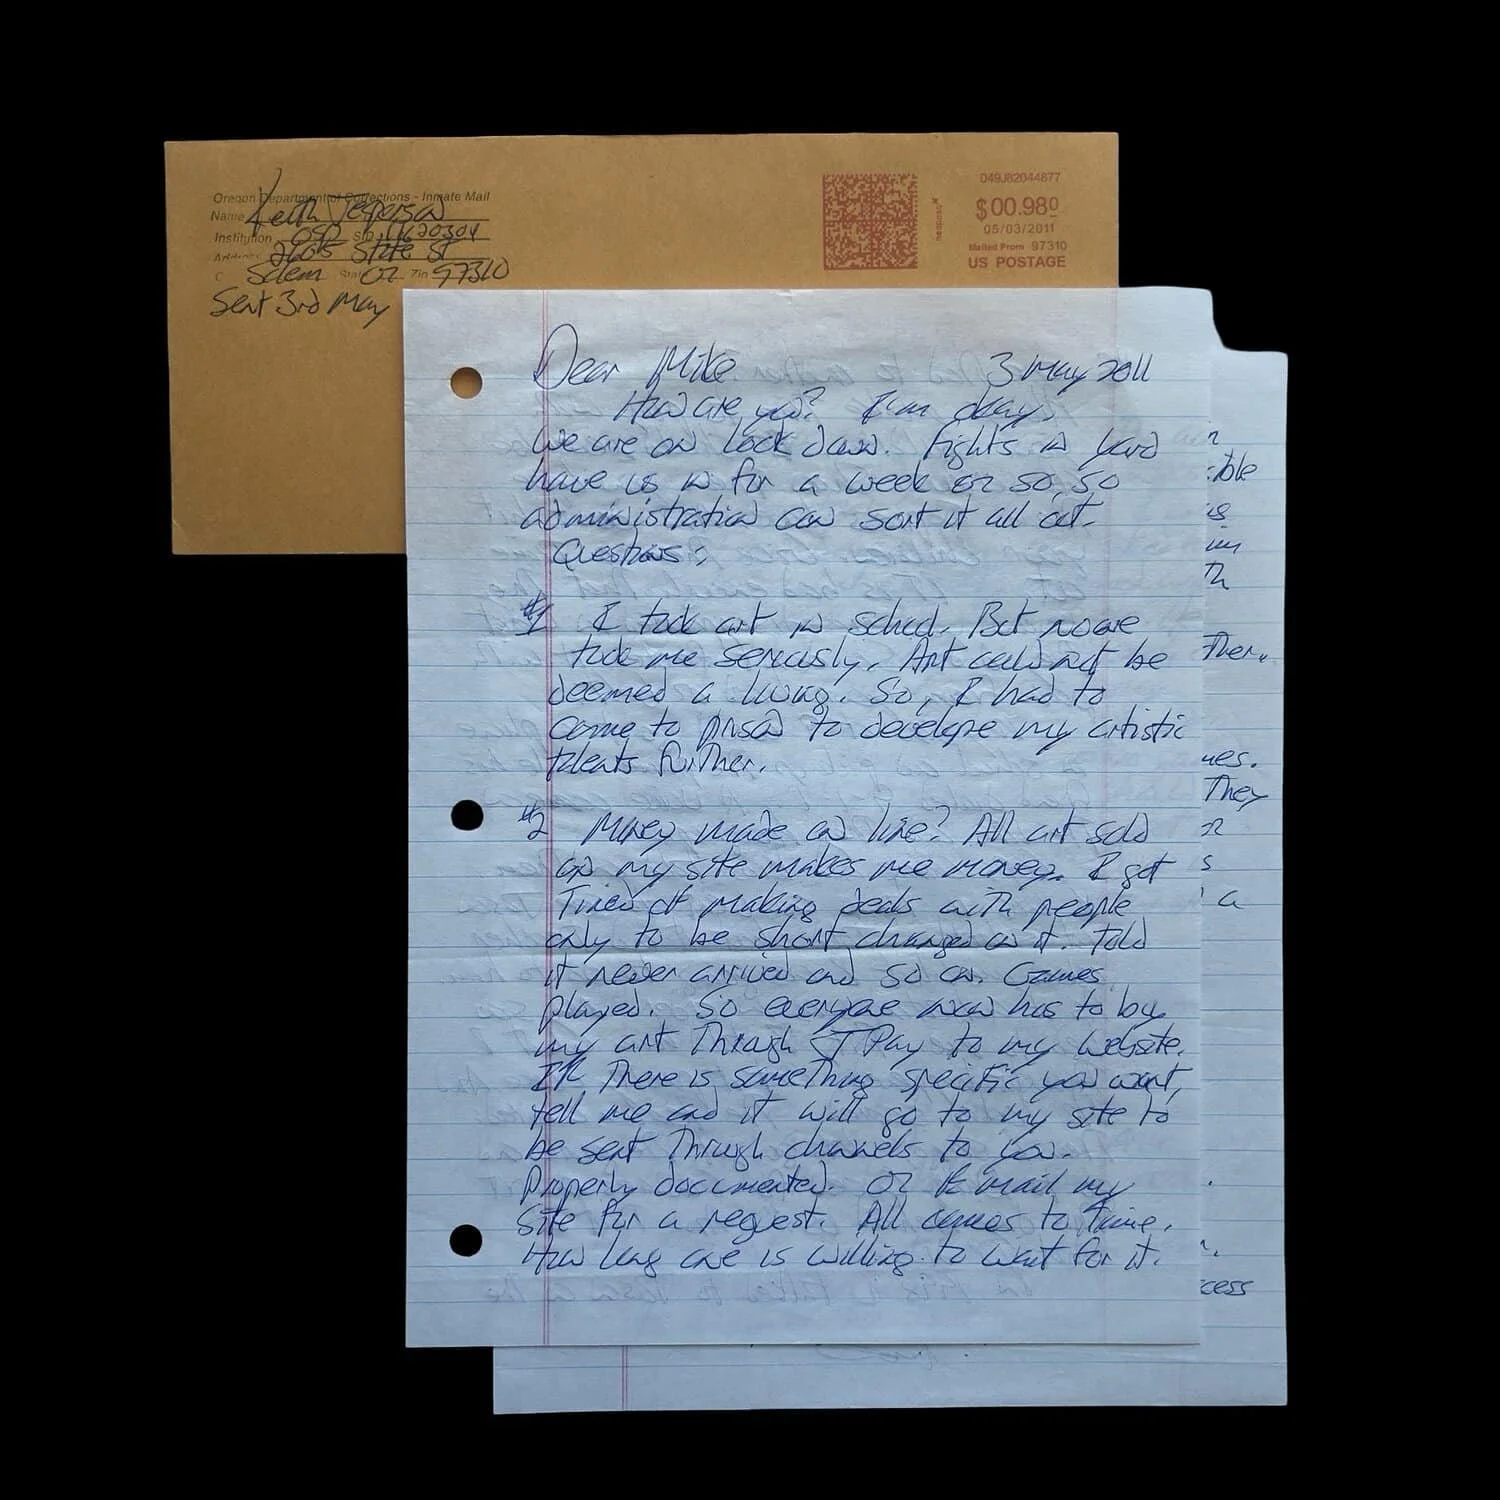 Oregon Department of Corrections - Inmate Mail
Name Keith Jesperson
Institution OSP SID 11620304
Address 2605 State St
Salem State OR Zip 97310
Sent 3rd May
049J82044877
$00.980
05/03/2011
Mailed From 97310
US POSTAGE
neopost
Dear Mike 3 May 2011
How are you? I'm okay.
We are on lock down. Fights in yard
have us in for a week or so, so
administration can sort it all out.
Questions:
#1 I took art in school. But no one
took me seriously. Art could not be
deemed a living. So, I had to
come to prison to develope my artistic
talents further.
#2 Money made on line? All art sold
on my site makes me money. I got
Tired of making deals with people
only to be short changed on it. Told
it never arrived and so on. Games
played. So everyone now has to buy
my art Through JPay to my website.
If There is someThing specific you want,
tell me and it will go to my site to
be sent Through channels to you.
Properly documented. Or E mail my
site for a request. All comes to Time.
How long one is willing to wait for it.
Ther.
They
a